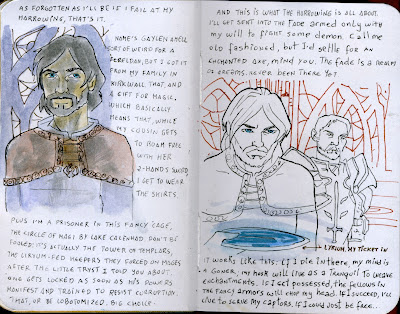 AS FORGOTTEN AS I'LL BE IF I FAIL AT MY
HARROWING, THAT'S IT.
NAME'S GAYLEN AMELL
SORT OF WEIRD FOR A
FERELDAN, BUT I GOT IT
FROM MY FAMILY IN
KIRKWALL. THAT, AND
A GIFT FOR MAGIC,
WHICH BASICALLY
MEANS THAT, WHILE
MY COUSIN GETS
TO ROAM FREE
WITH HER
2-HANDS SWORD
I GET TO WEAR
THE SKIRTS.
PLUS I'M A PRISONER IN THIS FANCY CAGE,
THE CIRCLE OF MAGI BY LAKE CALENHAD. DON'T BE
FOOLED: IT'S ACTUALLY THE TOWER OF TEMPLARS,
THE LYRIUM-FED KEEPERS THEY FORCED ON MAGES
AFTER THE LITTLE TRYST I TOLD YOU ABOUT.
ONE GETS LOCKED AS SOON AS HIS POWERS
MANIFEST AND TRAINED TO RESIST CORRUPTION.
THAT, OR BE LOBOTOMIZED. BIG CHOICE.
AND THIS IS WHAT THE HARROWING IS ALL ABOUT.
I'LL GET SENT INTO THE FADE ARMED ONLY WITH
MY WILL TO FIGHT SOME DEMON. CALL ME
OLD FASHIONED, BUT I'D SETTLE FOR AN
ENCHANTED AXE, MIND YOU. THE FADE IS A REALM
OF DREAMS. NEVER BEEN THERE YET.
LYRIUM, MY TICKET IN
IT WORKS LIKE THIS: IF I DIE IN THERE, MY MIND IS
A GONER, MY HUSK WILL LIVE AS A TRANQUIL TO WEAVE
ENCHANTMENTS. IF I GET POSSESSED, THE FELLOWS IN
THE FANCY ARMORS WILL CHOP MY HEAD. IF I SUCCEED, I'LL
LIVE TO SERVE MY CAPTORS. IF I COULD JUST BE FREE...